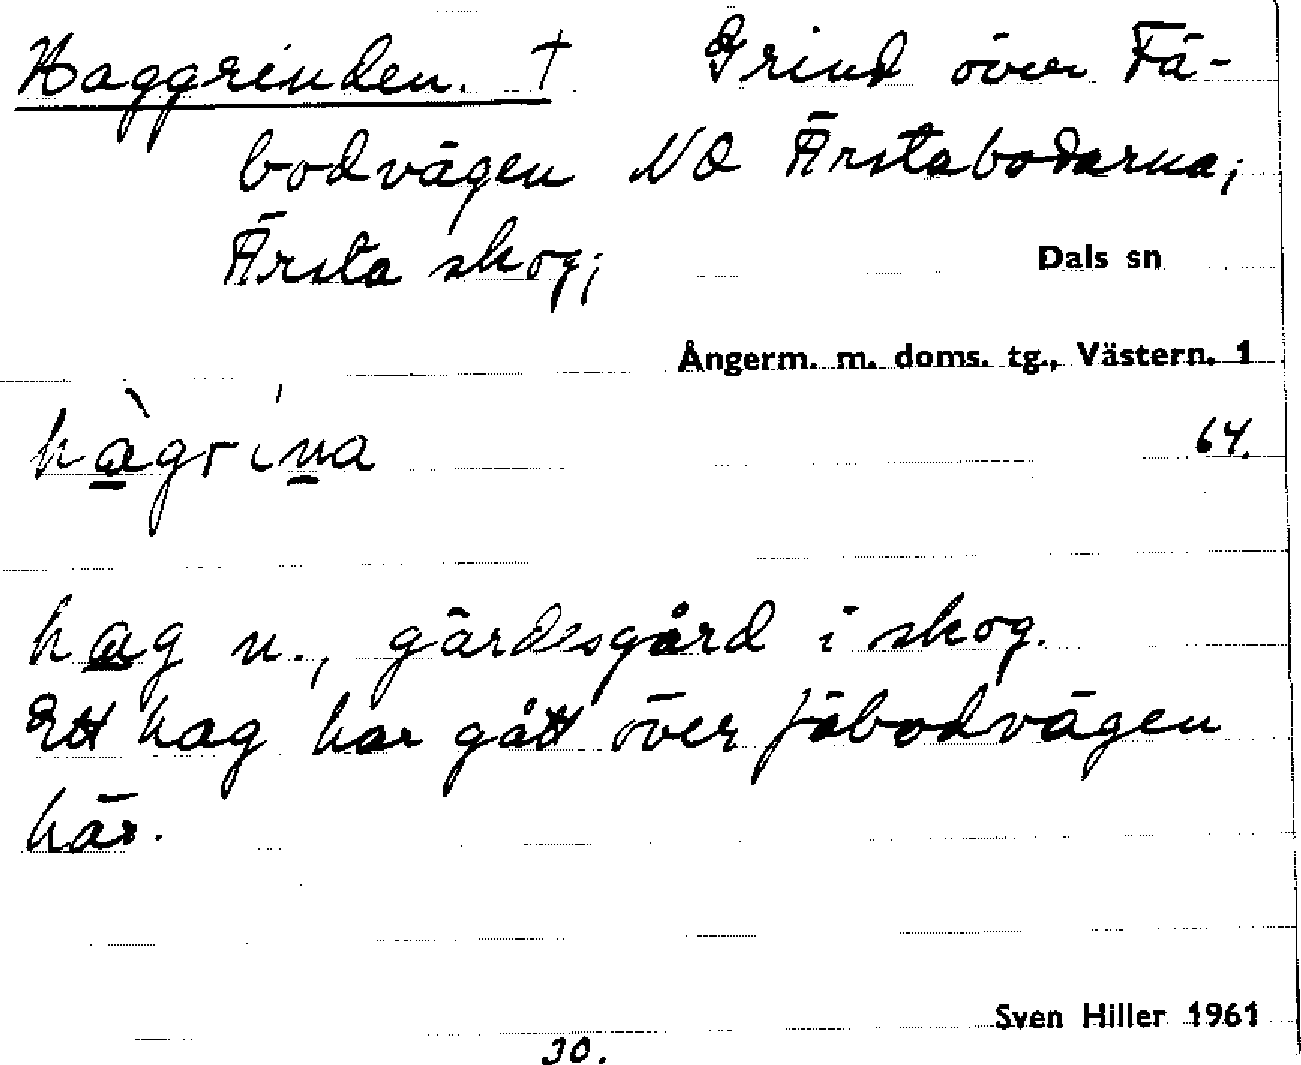 Haggrinden. † Grind över Fä-
bodvägen NO Ärstabodarna;
Ärsta skog; Dals sn
Ångerm. m. doms. tg., Västern. 1
hàgrína 64.
hag n., gärdesgård i skog.
Ett hag har gått över fäbodvägen
här.
Sven Hiller 1961
30.